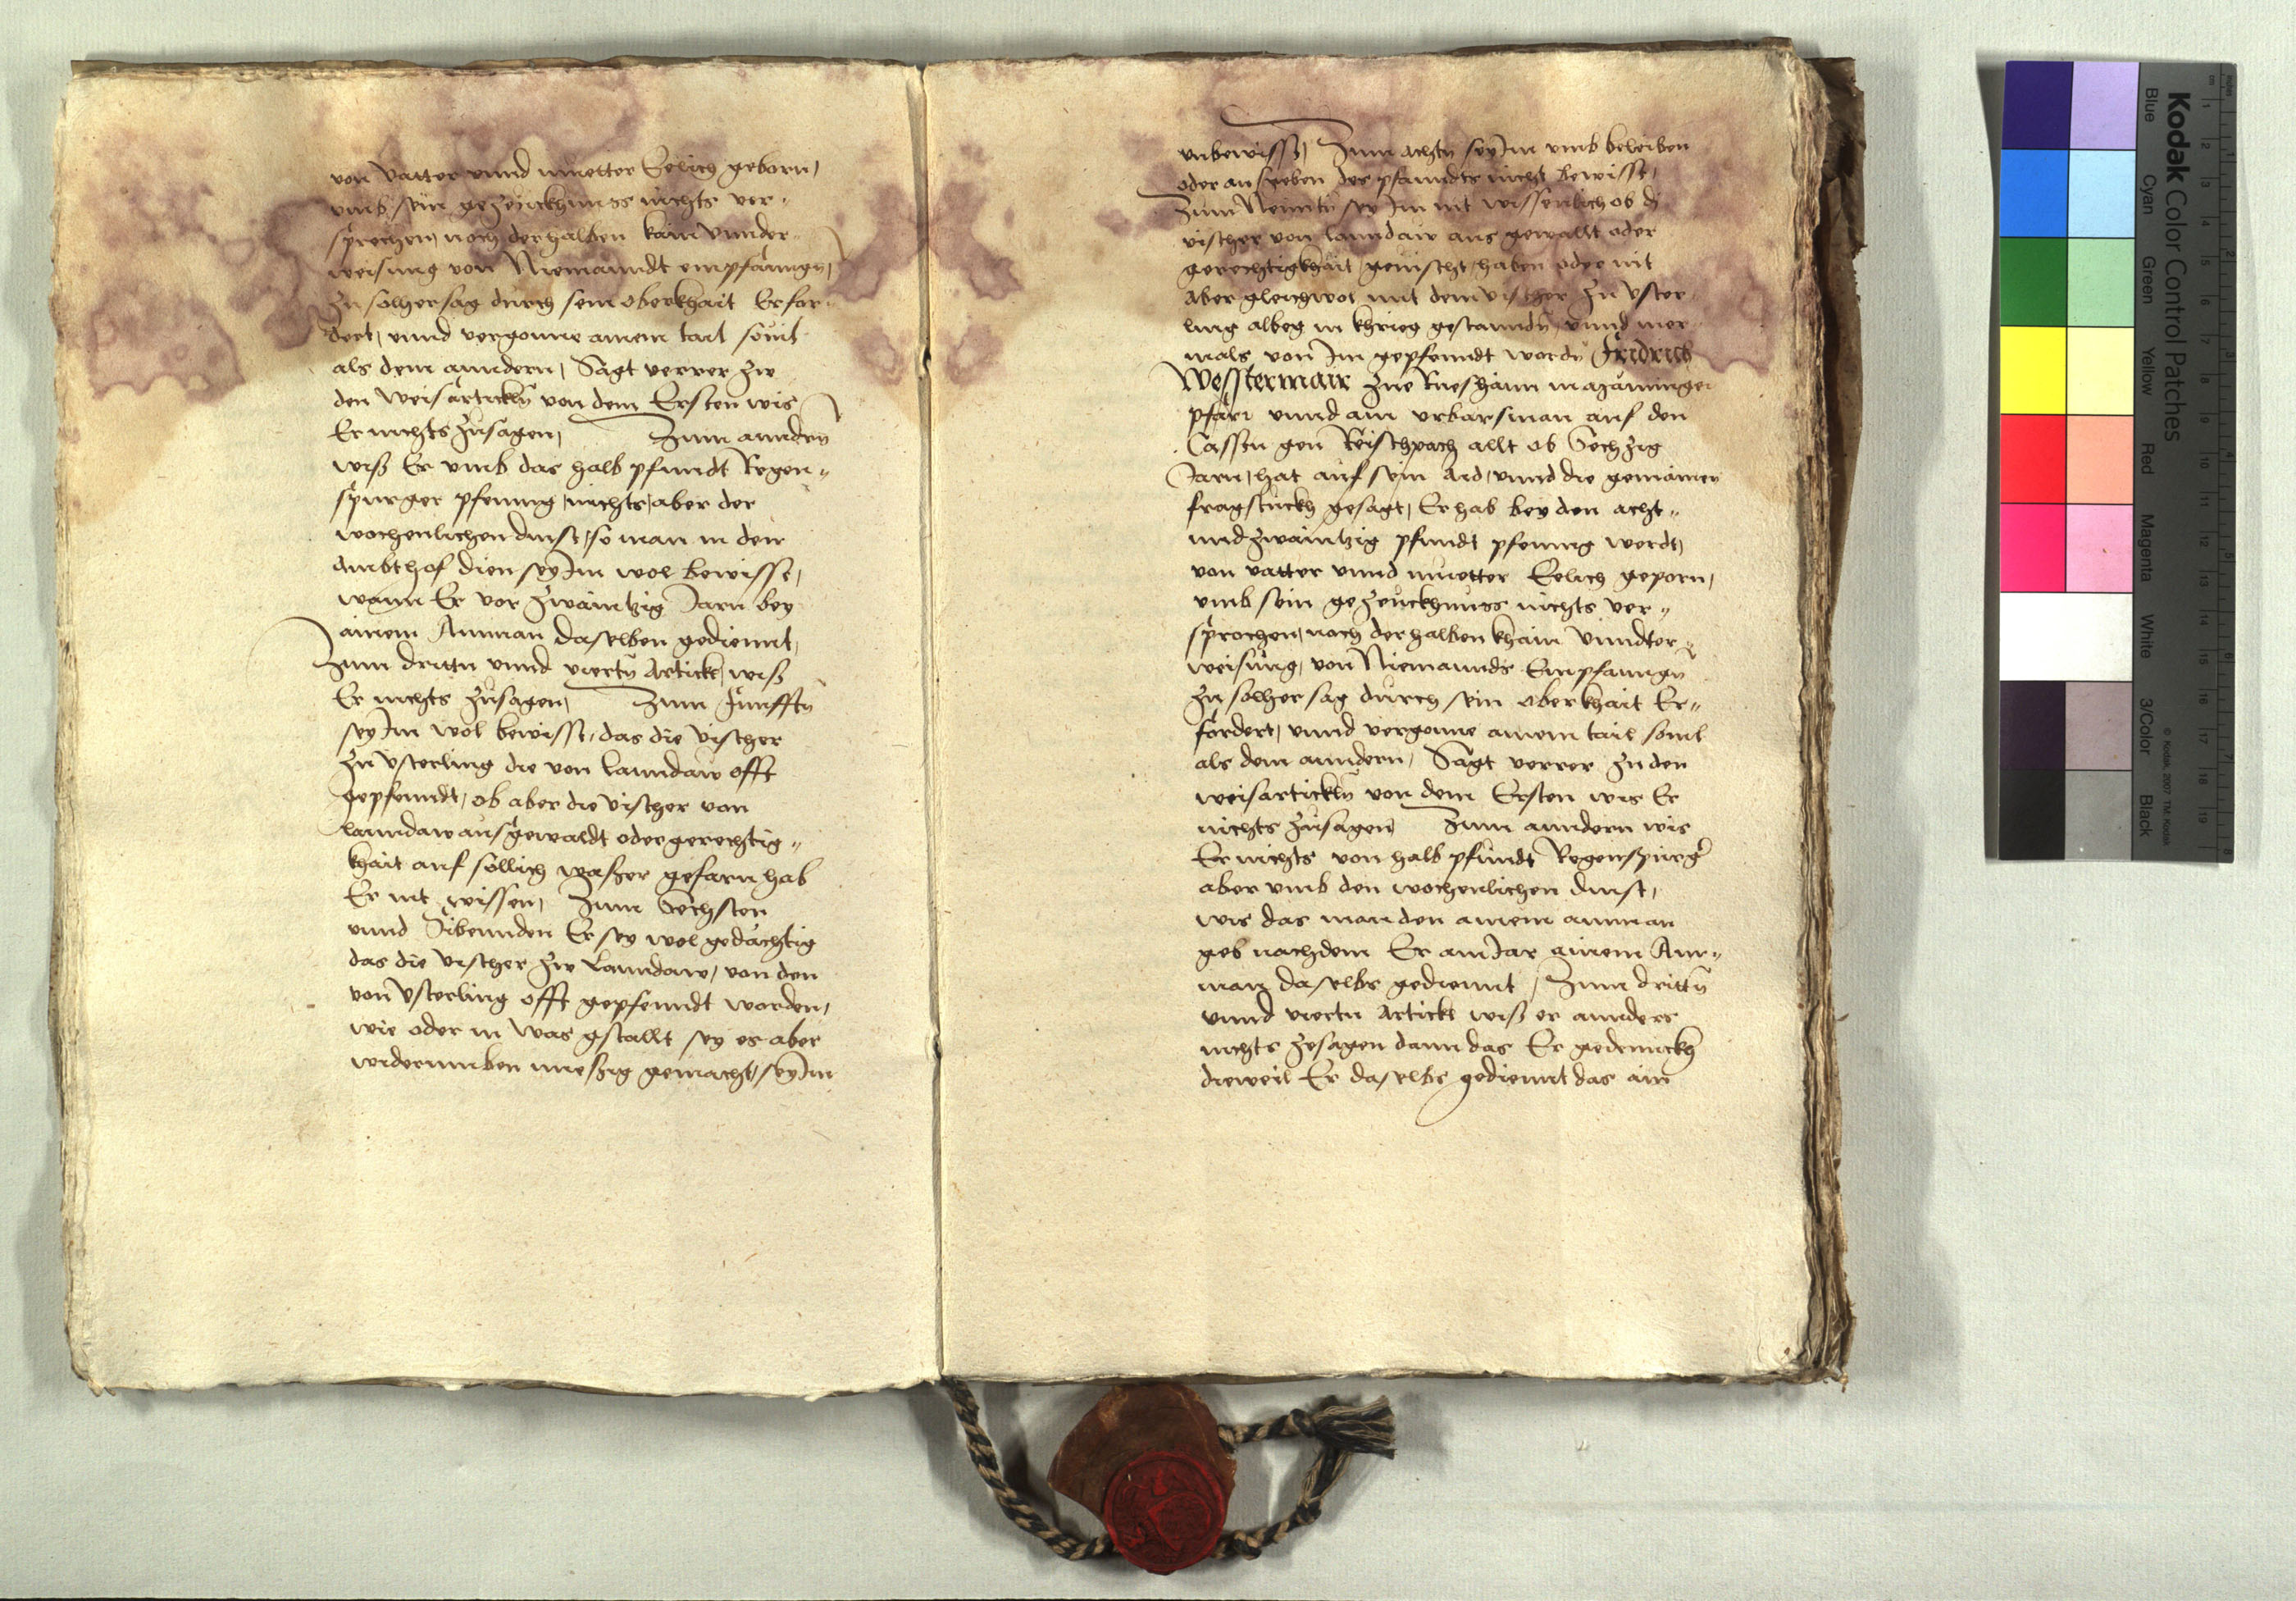 von Vatter vnnd muetter Eelich geborn,
vmb sein gezeuckhnuss nichts ver„
sprochen, noch derhalben kain vnnder„
weisung von Niemanndt empfanngn,
zu solher sag durch sein oberkhait Erfor„
dert, vnnd vergonne ainem tail souil
als dem anndern, Sagt verrer zw
den Weisartickln von dem Ersten wis
Er nichts zusagen, Zum anndrn
wiß Er vmb das halb pfundt Regen„
spurger pfening, nichts, aber der
wochenlichen dinst, so man in den
Ambthof dien sey Im wol bewisst,
wann Er vor zwaintzig Jarn bey
ainem Amman daselben gediennt,
Zum dritn vnnd viertn Artickl, wiß
Er nichts zusagen, Zum Funfftn
sey Im wol bewisst, das die vischer
zu vsterling die von Lanndaw offt
gepfenndt, ob aber die vischer von
lanndaw aus gewaldt oder gerechtig„
khait auf sollich wasser gefarn hab
Er nit wissen, Zum Sechsten
vnnd Sibennden Er sey wol gedachtig
das die vischer zw Lanndaw, von den
von vsterling offt gepfenndt worden,
wie oder in was gstallt sey es aber
widerumben muessig gemacht, sey Im
vnbewisst, Zum achtn sey Im vmb beleiben
oder des pfanndts nicht bewisst,
Zum Neuntn sey Im nit wissenlich ob di
vischer von lanndaw aus gewallt oder
gerechtigkhait gevischt haben oder nit
aber gleichwol mit dem vischer zu vster
ling albeg in khrieg gestanndn, vnnd mer
mals von Im gepfenndt wordn Fridrich
Wesstermair zue
pfarr vnnd ain vrbarsman auf den
Cassten gen Reischpach allt ob Sechzig
Jarn, hat auf sein Aid, vnnd die gemainen
fragstuckh gesagt, Er hab bey den acht„
vnd zwaintzig pfundt pfening werdt,
von vatter vnnd muetter Eelich geporn,
vmb sein gezeuckhnuss nichts ver„
sprochen, noch derhalben khain vnndter„
weisung, von Niemannds Empfanngn
zu solher sag durch sein oberkhait Er„
fordert, vnnd vergonne ainem tail souil
als dem anndern, Sagt verrer zu den
weisartickln von dem Ersten wis Er
nichts zusagen Zum anndern wis
Er nichts von halb pfundt Regenspurgr
aber vmb den wochenlichen dinst,
wis das man den ainem amman
geb nachdem Er ain Jar ainem Am„
man daselbs gediennt, Zum drittn
vnnd viertn Artickl wiß er annders
nichts zesagen dann das Er gedennckh
dieweil Er daselbs gediennt das ain